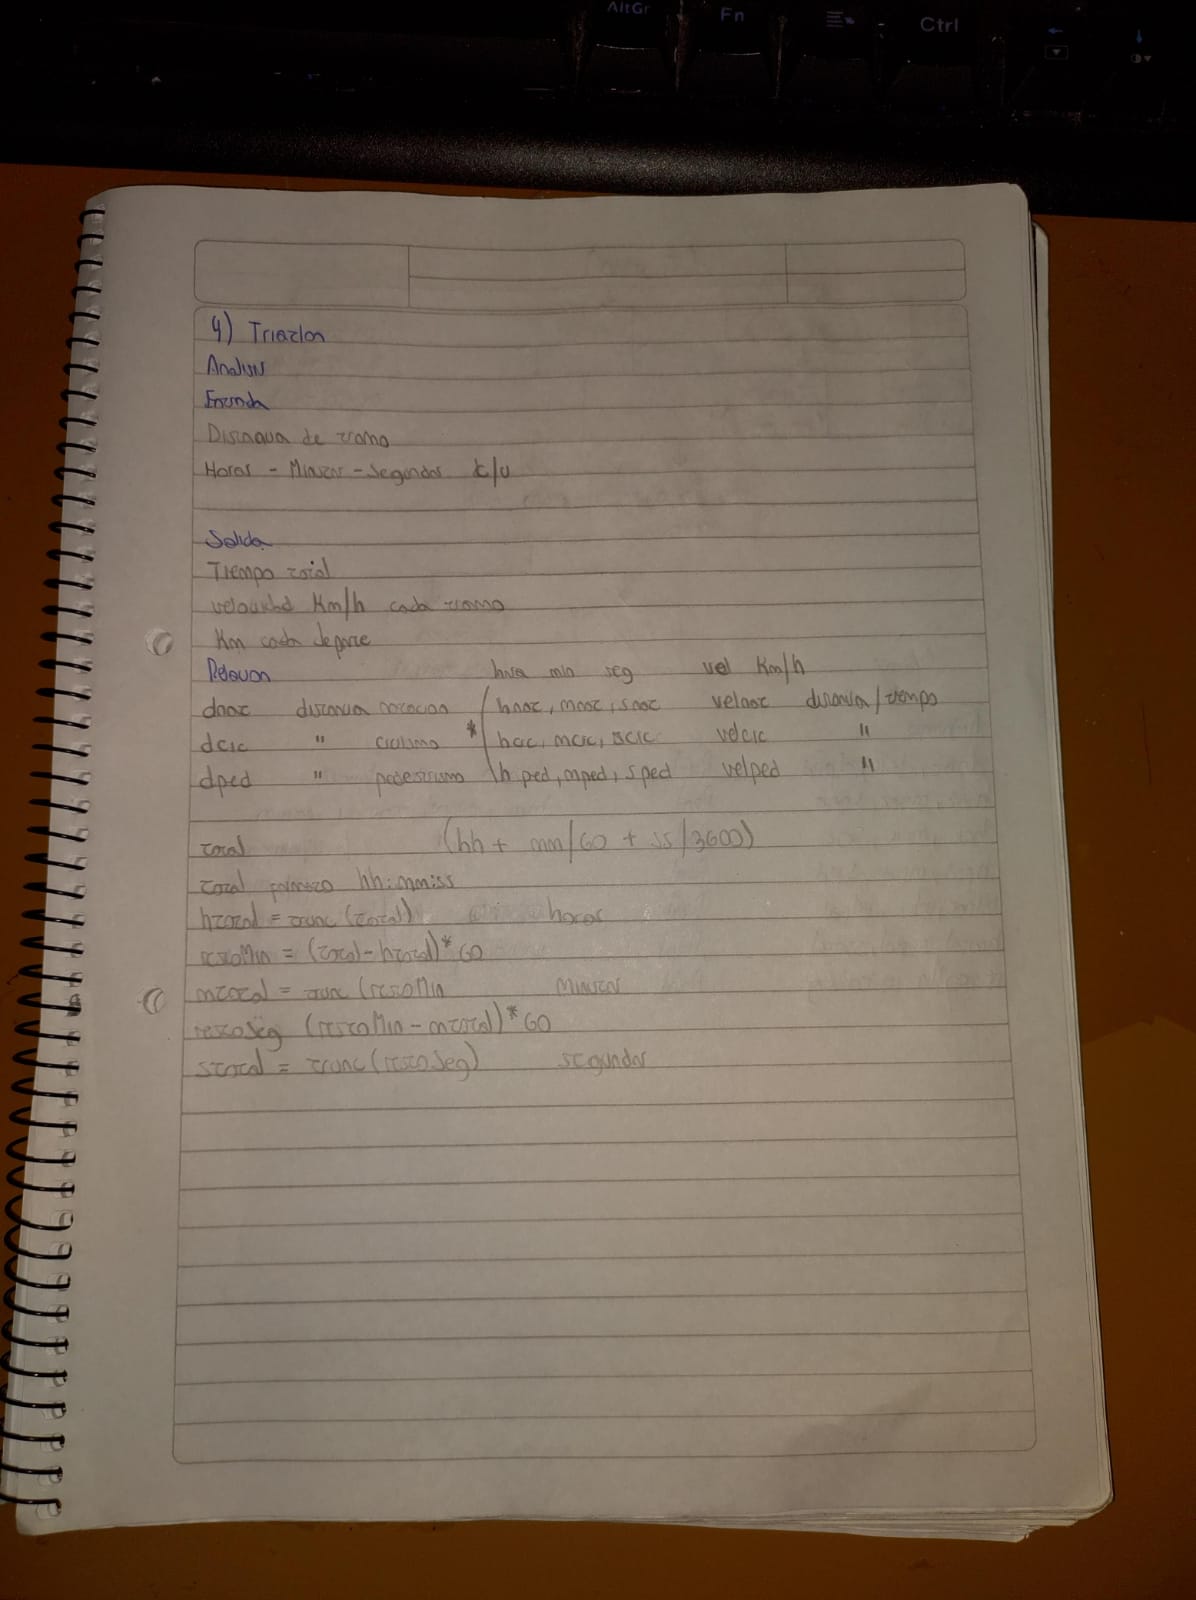 AltGr Fn Ctrl
4) Triatlon
Analisis
Entrada
Distancia de tramo
Horas - Minutos - Segundos c/u
Salida
Tiempo total
velocidad Km/h cada tramo
Km cada deporte
Relacion hora min seg vel Km/h
dnat distancia natacion hnat, mnat, snat velnat distancia/tiempo
dcic " ciclismo * hcic, mcic, scic velcic "
dped " pedestrismo hped, mped, sped velped "
total (hh + mm/60 + ss/3600)
total formato hh:mm:ss
htotal = trunc(total) horas
restoMin = (total-htotal)*60
mtotal = trunc(restoMin minutos
restoSeg (restoMin-mtotal)*60
stotal = trunc(restoSeg) segundos